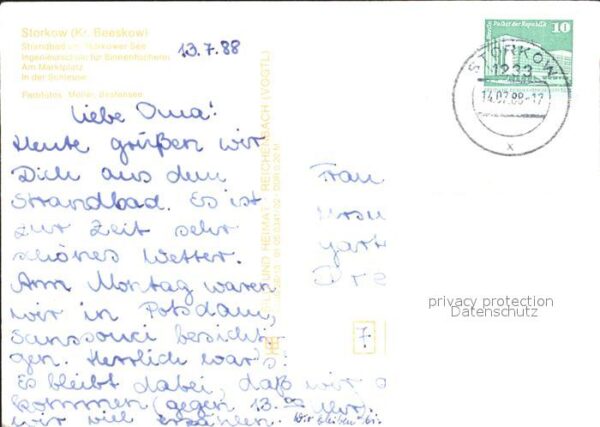 Storkow (Kr. Beeskow)
Strandbad am Storkower See
Ingenieurschule für Binnenfischerei
Am Marktplatz
In der Schleuse
13.7.88
Palast der Republik
10
STORKOW
1233
14.07.88-17
x
Liebe Oma!
Heute grüßen wir
Dich aus dem
Strandbad. Es ist
zur Zeit sehr
schönes Wetter.
Am Montag waren
wir in Potsdam,
Sanssouci besichti
gen. Herrlich war's!
Es bleibt dabei, daß wir
kommen (gegen 13.00 Uhr).
wir viel erzählen. Wir bleiben bis
BILD UND HEIMAT REICHENBACH (VOGTL)
Frau
Ursu
gart
Dre
7
privacy protection
Datenschutz